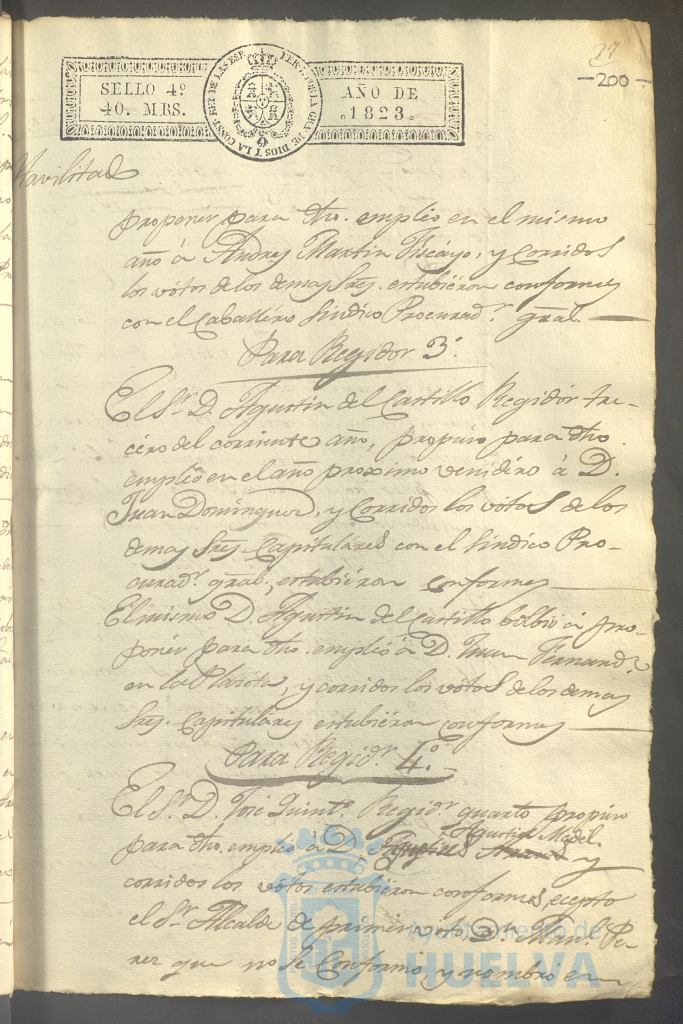 17
-200-
SELLO 4º
40. MRS.
AÑO DE
1823.
Havilitado
proponer para dho. empleo en el mismo
año á Andres Martin Viscayo, y corridos
los vótos de los demas Sres. estubiéron conformes
con el Caballéro Sindico Procuradr. gral.
Para Regidor 3º.
El Sr. D. Agustin del Castillo Regidór ter-
céro del corriente año, propuso para dho.
empléo en el año proximo venidéro á D.
Juan Dominguez, y corridos los vótos de los
demas Sres. Capituláres con el Sindico Pro-
curadr. gral., estubiéron conformes
El mismo D. Agustin del Castillo bolbió á pro-
ponér para dho. empléo á D. Juan Fernandz.
en la Placéta, y corridos los vótos de los demas
Sres. Capituláres estubiéron conformes
Para Regidr. 4º.
El Sr. D. José Quintº. Regidr. quarto propuso
para dho. empléo á D. Agustin Medel. y
corridos los vótos estubiéron conformes, ecepto
el Sr. Alcalde de primer voto, Dn. Manl. Pe-
rez que no se conformó y nombró en
Ayuntamiento de
HUELVA